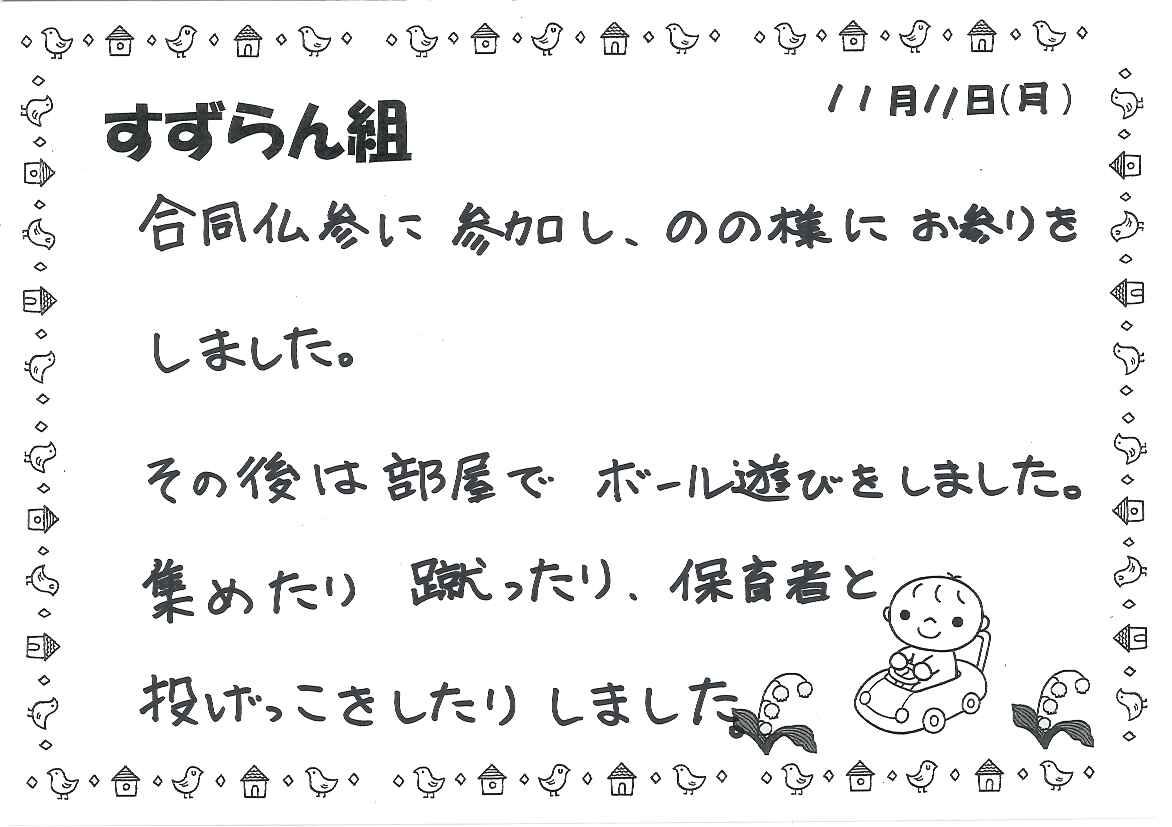 11月11日(月)
すずらん組
合同仏参に参加し、ののの様にお参りを
しました。
その後は部屋でボール遊びをしました。
集めたり蹴ったり、保育者と
投げっこをしたりしました。